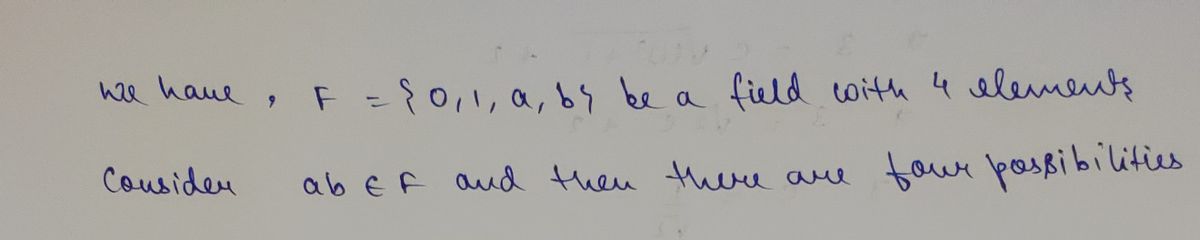 we have, F = {0,1, a, b} be a field with 4 elements
Consider ab ∈ F and then there are four possibilities